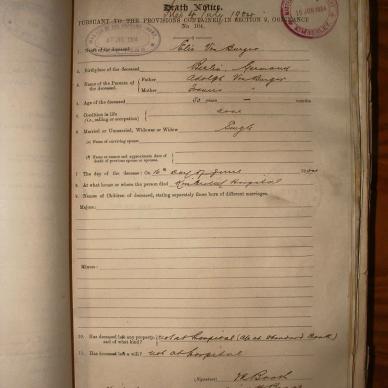 Death Notice.
PURSUANT TO THE PROVISIONS CONTAINED IN SECTION 9, ORDINANCE
No. 104.
1. Name of the deceased Elis Von Burger
2. Birthplace of the deceased Berlin Germany
3. Names of the Parents of the deceased Father Adolph Von Burger
Mother Frances "
4. Age of the deceased 30 years — months
5. Condition in life
(i.e., calling or occupation)
6. Married or Unmarried, Widower or Widow Single
(a) Name of surviving spouse
(b) Name or names and approximate date of
death of previous spouse or spouses.
7. The day of the decease: On 16th day of June
8. At what house or where the person died Hospital
9. Names of Children of deceased, stating separately those born of different marriages.
Majors:
Minors:
10. Has deceased left any property, and of what kind? not at hospital (a/c at Standard Bank)
11. Has deceased left a will? not at hospital
(Signature)